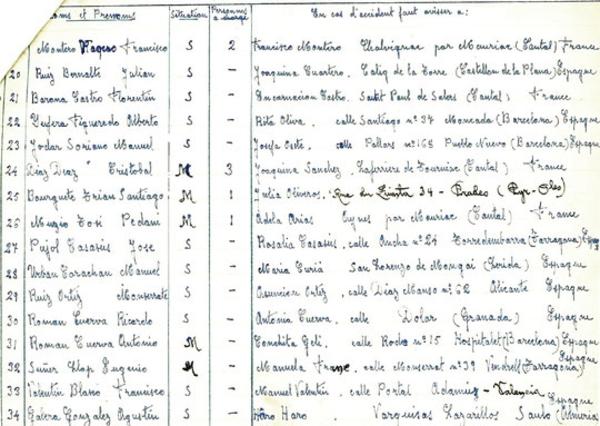 Noms et Prenoms Situation Personnes a charge En cas d'accident faut aviser a:
Montero Francisco S 2 Francisco Montero par Mauriac (Cantal) France
20 Ruiz Bernalte Julian S - Joaquina Cuartero. Calig de la Torre (Castellon de la Plana) Espagne
21 Barona Castro Florentin S - Encarnacion Castro. Saint Paul de Salers (Cantal) France
22 Figueredo Alberto S - Rita Oliva. calle Santiago nº 37 Moncada (Barcelona) Espagne
23 Jodar Soriano Manuel S - Josefa Oste. calle Pallars nº 168 Pueblo Nuevo (Barcelona) Espagne
24 Diaz Diaz Cristobal M 3 Joaquina Sanchez. Laferriere de (Cantal) France
25 Bourguete Trian Santiago M 1 Julia Oliveros. Rue du 34 - Prades (Pyr-Oles)
26 Muzio José Pedani M 1 Adela Arias par Mauriac (Cantal) France
27 Pujol Casasus Jose S - Rosalia Casasus. calle Ancha nº 24 Torredembarra (Tarragona) Espagne
28 Urban Corachan Manuel S - Maria Curia San Lorenzo de Mongai (Lerida) Espagne
29 Ruiz Ortiz Monserrate S - Asuncion Ortiz. calle Diaz Manso nº 62 Alicante Espagne
30 Roman Cuerva Ricardo S - Antonia Cuerva. calle Dolar (Granada) Espagne
31 Roman Cuerva Antonio M - Conchita Geli. calle Roche nº 15 Hospitalet (Barcelona) Espagne
32 Suñer Llop Eugenio M - Manuela Franc. calle Monserrat nº 39 Vendrell (Tarragona) Espagne
33 Valentin Blasco Francisco S - Manuel Valentin. calle Portal - Valencia Espagne
34 Galera Gonzalez Agustin S - Haro (Almeria)